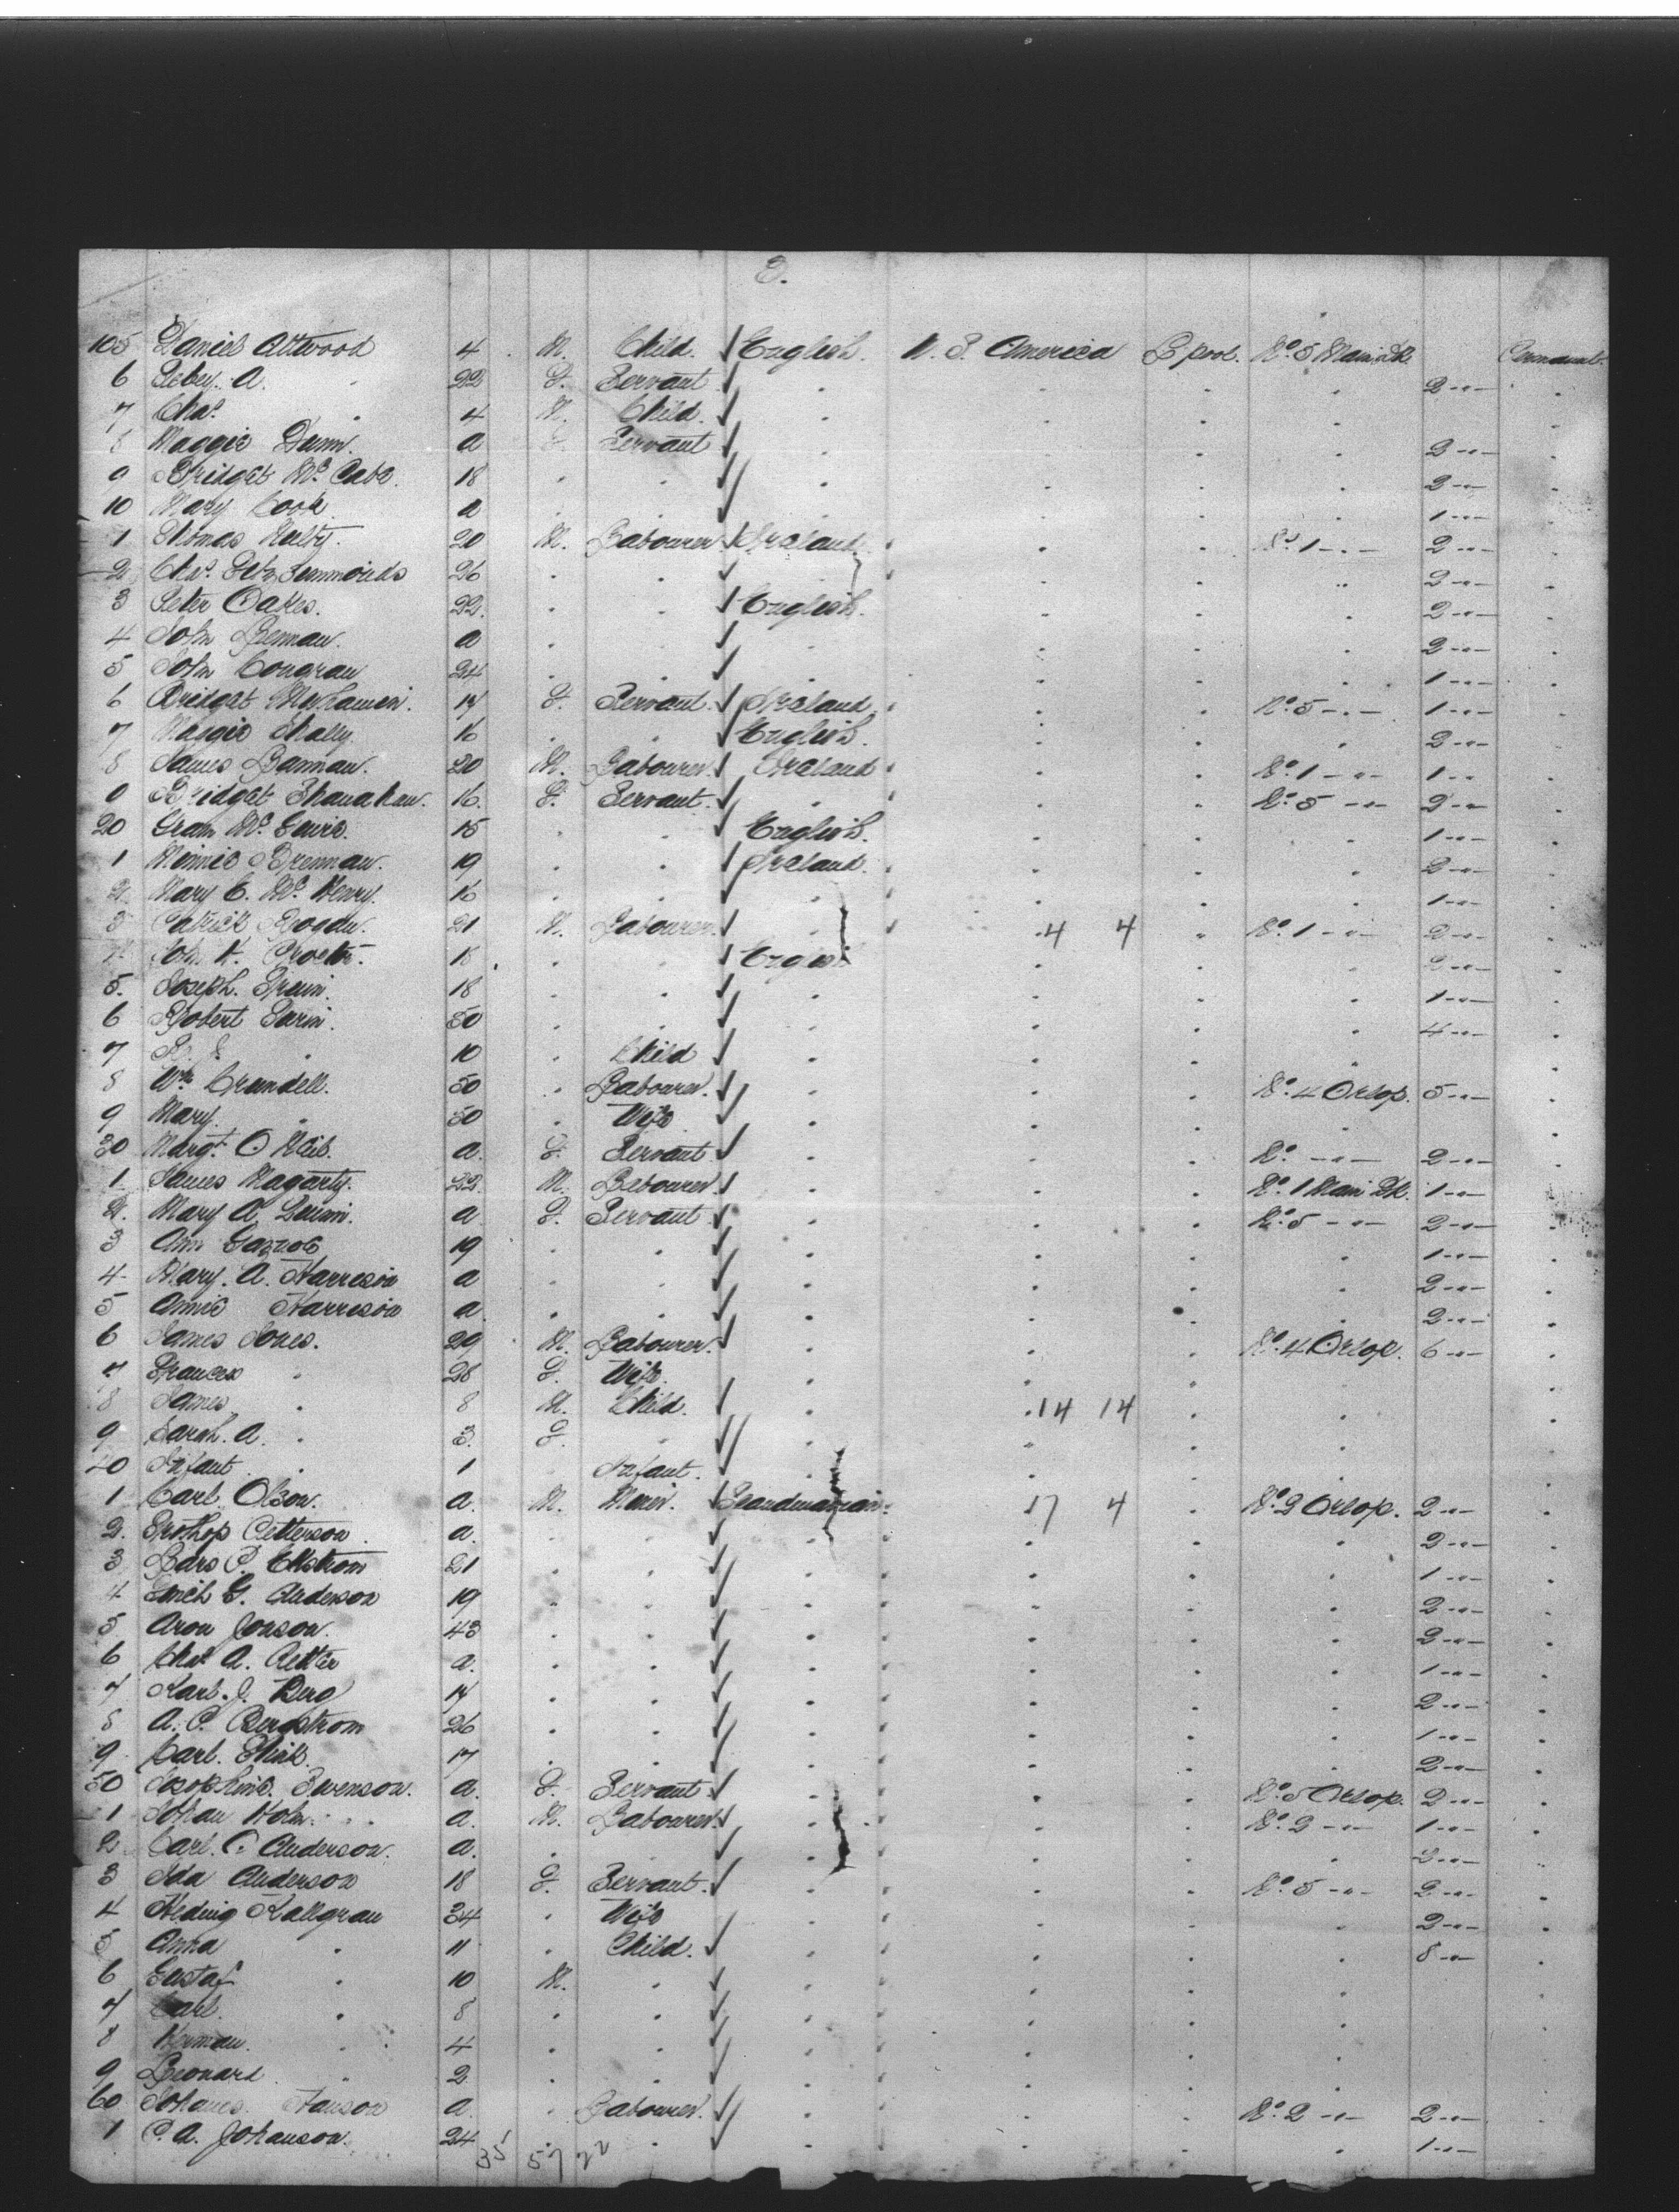 3.
105 Daniel Attwood 4 M. Child. English. U. S. America L'pool. No. 5 Main Dk. Permanent.
6 Peber. A. 22 F. Servant 2
7 Chas. 4 M. Child.
8 Maggie Dunn. a Servant 2
9 Bridget McCabe. 18 2
10 Mary Cook a 1
1 Thomas Kelty. 20 M. Labourer Ireland No. 1 2
2 Chas. Simmonds 26 2
3 Peter Oakes. 22. English. 2
4 John Brennan. a 2
5 John Congrau 24 1
6 Bridget 17 F. Servant. Ireland No. 5 1
7 Maggie Shally. 16 English. 2
8 James Bannan. 20 M. Labourer. Ireland No. 1 1
9 Bridget Shanahan. 16. F. Servant. No. 5 2
20 Mc 15 English. 1
1 Minnie Brennan. 19 Ireland. 2
2 Mary E. McHenry. 16 1
3 Patrick Bogdu. 21 M. Labourer. 4 4 No. 1 2
4 John H. Procter. 18 English 2
5. Joseph. 18 1
6 Robert 50 4
7 10 Child
8 Wm Crundell. 50 Labourer. No. 4 Orlop. 5
9 Mary. 50 Wife
30 Margt. O a. F. Servant. No. 2
1 James Hagarty. 22. M. Labourer. No. 1 Main Dk. 1
2. Mary A. a F. Servant No. 5 2
3 Ann 19 1
4 Mary. A. Harreson a 2
5 Annie Harreson a. 2
6 James Jones. 29 M. Labourer. No. 4 Orlop. 6
7 Frances 28 F. Wife.
8 James 8 M. Child. 14 14
9 Sarah. A. 3. F.
40 Infant 1 Infant.
1 Carl Olson. a. M. Scandinavian 17 4 No. 2 Orlop. 2
2. Petterson a. 2
3 Lars P. Ekstrom 21 1
4 G. Anderson 19 2
5 Aron Jonson. 43 2
6 Chas A. a. 1
7 Karl. J. Berg 17 2
8 A. P. Bergstrom 26 1
9 Carl. 17 2
50 Josophine. Swenson. a. F. Servant No. 5 Orlop. 2
1 Johan Holm. a. M. Labourer. No. 2 1
2 Carl. C. Anderson. a. 2
3 Ida Anderson 18 F. Servant. No. 5 2
4 Hedwig Kallgran 34 Wife 2
5 Anna 11 Child. 8
6 Gustaf 10 M.
7 Carl. 8
8 Herman. 4
9 Leonard 2
60 Johanes. Hanson a. Labourer. No. 2 2
1 C. A. Johanson. 24 1
35 57 22